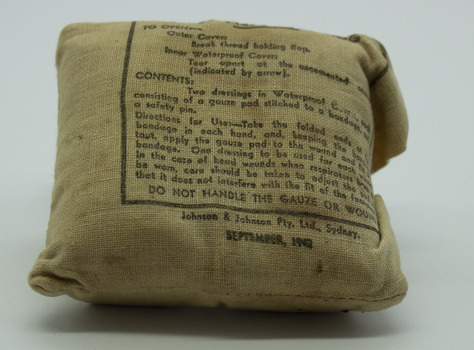 TO OPEN:
Outer Cover:
Break thread holding flap.
Inner Waterproof Cover:
Tear apart at the uncemented
(indicated by arrow).
CONTENTS:
Two dressings in Waterproof
consisting of a gauze pad stitched to a bandage
a safety pin.
Directions for Use:—Take the folded ends of
bandage in each hand, and, keeping the
taut, apply the gauze pad to the wound and
bandage. One dressing to be used for each
In the case of head wounds when respirator has
be worn, care should be taken to adjust the
that it does not interfere with the fit of the
DO NOT HANDLE THE GAUZE OR WOU
Johnson & Johnson Pty. Ltd., Sydney.
SEPTEMBER, 1942